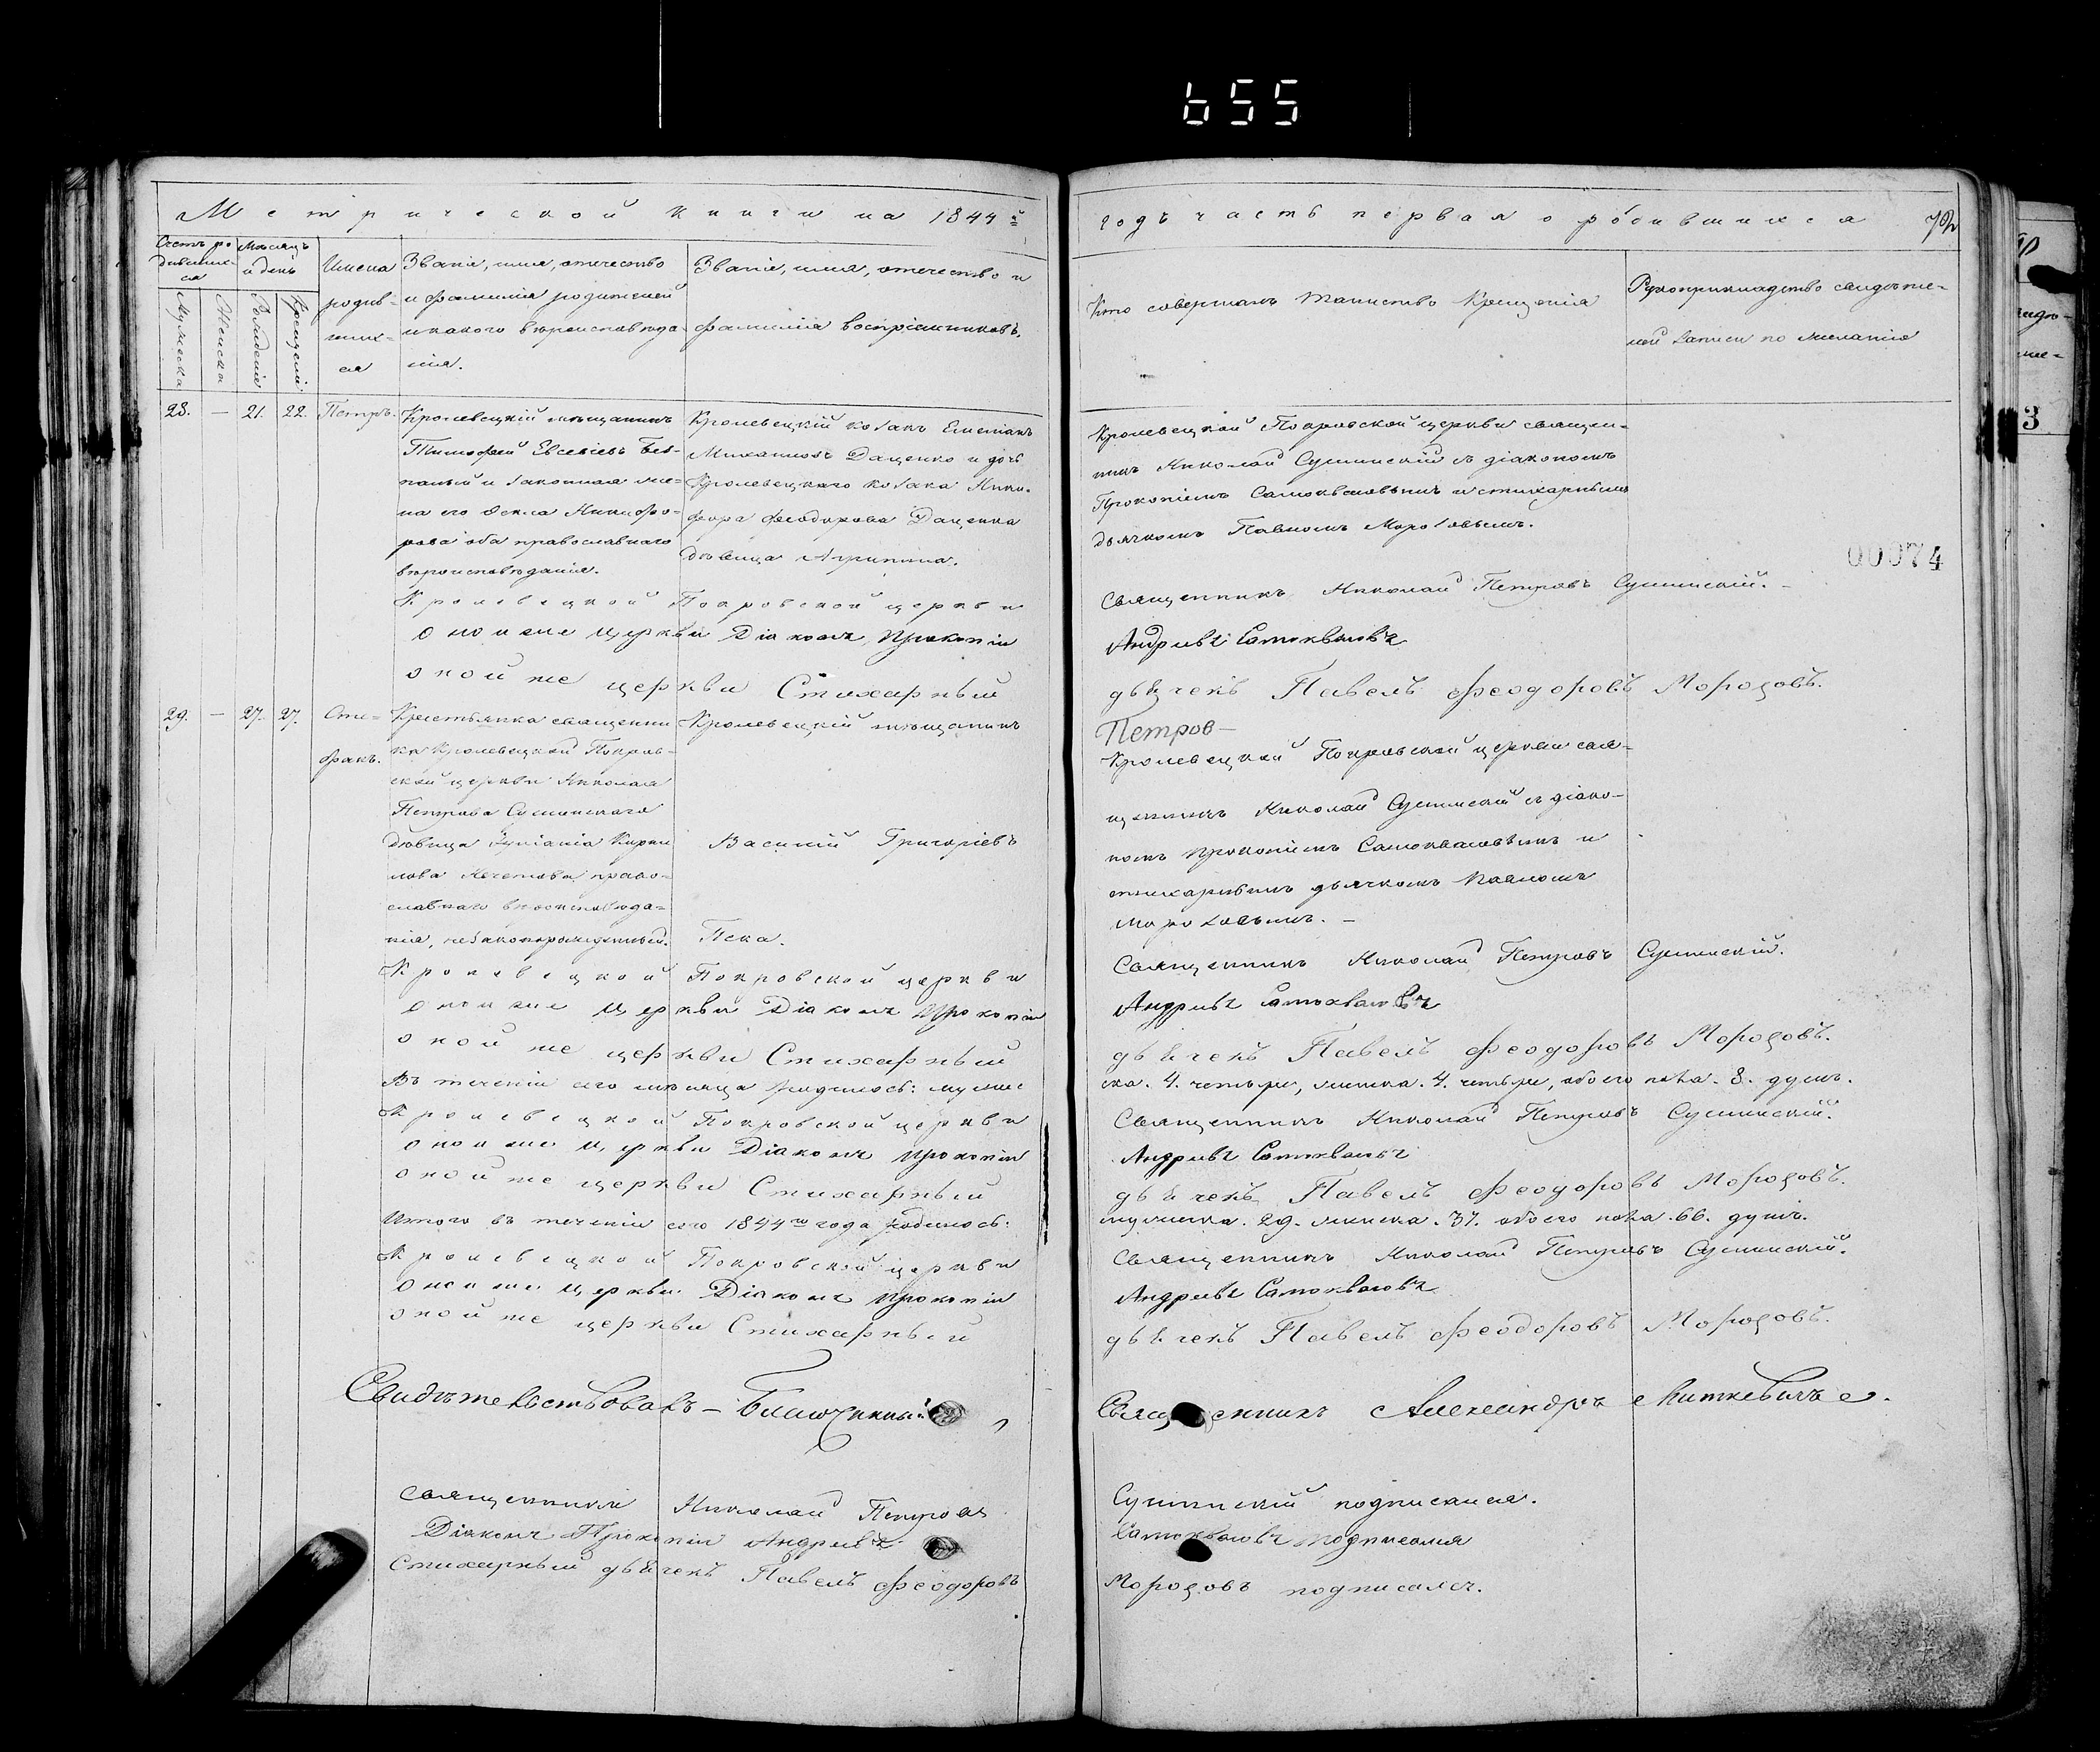 655
Метрической книги на 1844й
годъ часть первая о родившихся
Счетъ ро
дивших-
ся
Мѣсяцъ
и день
Мужеска
Женска
Рожденія
Крещенія
Имена
родив-
ших-
ся
Званіе, имя, отечество
и фамилія родителей
и какого вѣроисповѣда-
нія.
Званіе, имя, отечество и
фамилія воспріемниковъ.
Кто совершалъ таинство Крещенія
Рукоприкладство свидѣте-
лей записи по желанію
28. — 21. 22. Петръ.
Кролевецкій мѣщанинъ
Тимофей Евсѣевъ
и законная же-
на его Никифо-
рова оба православнаго
вѣроисповѣданія.
Кролевецкій козакъ Емеліанъ
Михайловъ Даценко и дочь
Кролевецкаго козака Ники-
фора Феодорова Даценка
дѣвица Агрипина.
Кролевецкой Покровской церкви священ-
никъ Николай Сушинскій съ діакономъ
Прокопіемъ Самоквасовымъ и стихарнымъ
дьячкомъ Павломъ Морозовымъ.
00074
Кролевецкой Покровской церкви
Священникъ Николай Петровъ Сушинскій.
оной же церкви Діаконъ Прокопій
Андреевъ Самоквасовъ
оной же церкви Стихарный
дьячекъ Павелъ Феодоровъ Морозовъ.
29. — 27. 27. Сте-
фанъ.
Крестьянка священни
ка Кролевецкой Покров-
ской церкви Николая
Петрова Сушинскаго
дѣвица Кирил
лова право-
славнаго вѣроисповѣда-
нія, незаконорожденный.
Кролевецкій мѣщанинъ
Василій Григоріевъ
Пека.
Петров—
Кролевецкой Покровской церкви свя-
щенникъ Николай Сушинскій съ діако-
номъ Прокопіемъ Самоквасовымъ и
стихарнымъ дьячкомъ Павломъ
Морозовымъ. —
Кролевецкой Покровской церкви
Священникъ Николай Петровъ Сушинскій.
оной же церкви Діаконъ Прокопій
Андреевъ Самоквасовъ
оной же церкви Стихарный
дьячекъ Павелъ Феодоровъ Морозовъ.
Въ теченіи сего мѣсяца родилось: муже
ска. 4. четыри, женска. 4. четыри, обоего пола. 8. душъ.
Кролевецкой Покровской церкви
Священникъ Николай Петровъ Сушинскій.
оной же церкви Діаконъ Прокопій
Андреевъ Самоквасовъ
оной же церкви Стихарный
дьячекъ Павелъ Феодоровъ Морозовъ.
Итого въ теченіи сего 1844го года родилось:
мужеска. 29. женска. 37. обоего пола. 66. душъ.
Кролевецкой Покровской церкви
Священникъ Николай Петровъ Сушинскій.
оной же церкви Діаконъ Прокопій
Андреевъ Самоквасовъ
оной же церкви Стихарный
дьячекъ Павелъ Феодоровъ Морозовъ.
Свидѣтельствовалъ — Благочинный
Священникъ Александръ Литкевичъ.
Священникъ Николай Петровъ
Сушинскій подписался.
Діаконъ Прокопій Андреевъ
Самоквасовъ подписался
Стихарный дьячекъ Павелъ Феодоровъ
Морозовъ подписался.
3